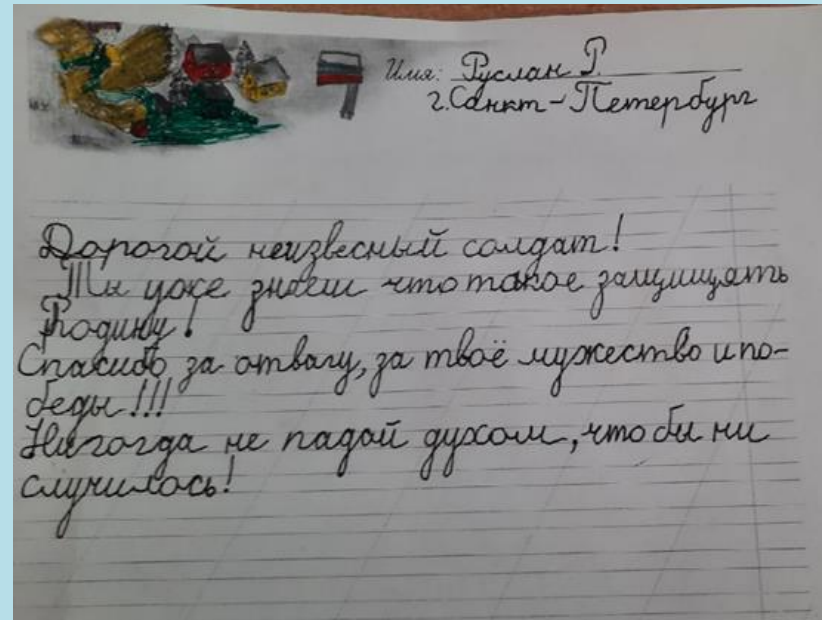 Имя: Руслан Р.
г.Санкт-Петербург
Дорогой неизвесный солдат!
Ты уже знаеш что такое защищять
Родину!
Спасибо за отвагу, за твоё мужество и по-
беды!!!
Никогда не падай духом, что бы ни
случилось!